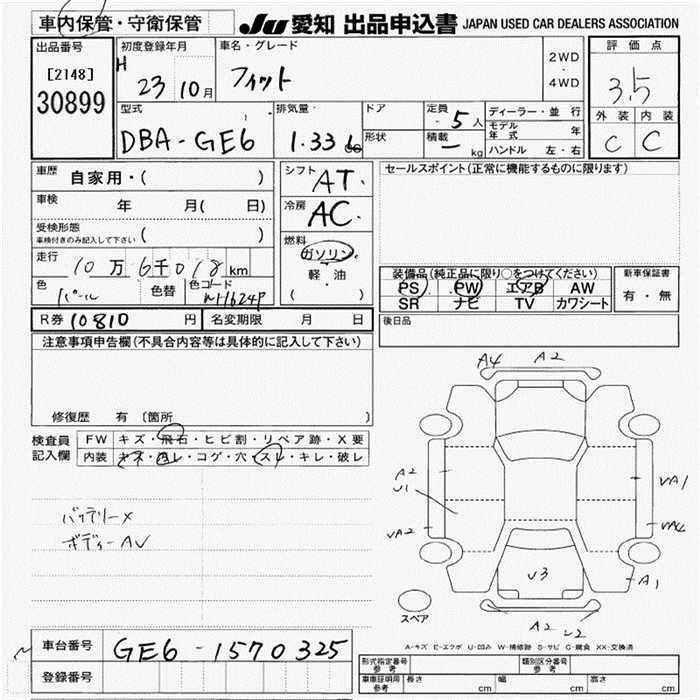 車内保管・守衛保管
JU 愛知 出品申込書 JAPAN USED CAR DEALERS ASSOCIATION
出品番号
[2148]
30899
初度登録年月
H 23 10月
車名・グレード
フィット
2WD
・
4WD
評価点
3.5
外装 内装
C C
型式
DBA-GE6
排気量
1.33
ドア
形状
定員
5人
積載
ー kg
ディーラー・並行
モデル年式 年
ハンドル 左・右
車歴 自家用・( )
車検 年 月( 日)
受検形態 ( )
車検付きのみ記入して下さい
走行 10万6千018km
色 パール 色替 色コード NH624P
シフト AT
冷房 AC
燃料
ガソリン
軽・油
( )
セールスポイント(正常に機能するものに限ります)
装備品(純正品に限り○をつけてください)
PS PW エアB AW
SR ナビ TV カワシート
新車保証書
有・無
R券 10810 円 名変期限 月 日
後日品
注意事項申告欄(不具合内容等は具体的に記入して下さい)
修復歴 有 〔箇所 〕
検査員記入欄
FW キズ・飛石・ヒビ割・リペア跡・X要
内装 キズ・汚レ・コゲ・穴・スレ・キレ・破レ
バッテリーX
ボディーAV
A4 A2
A2
U1
VA2
VA1
VA4
V3
A1
A2
U2
スペア
A-キズ E-エクボ U-凹ミ W-補修跡 S-サビ C-腐食 XX-交換済
車台番号 GE6-1570325
登録番号
型式指定番号 参考
類別区分番号 参考
車庫証明用 参考 長さ cm 幅 cm 高さ cm